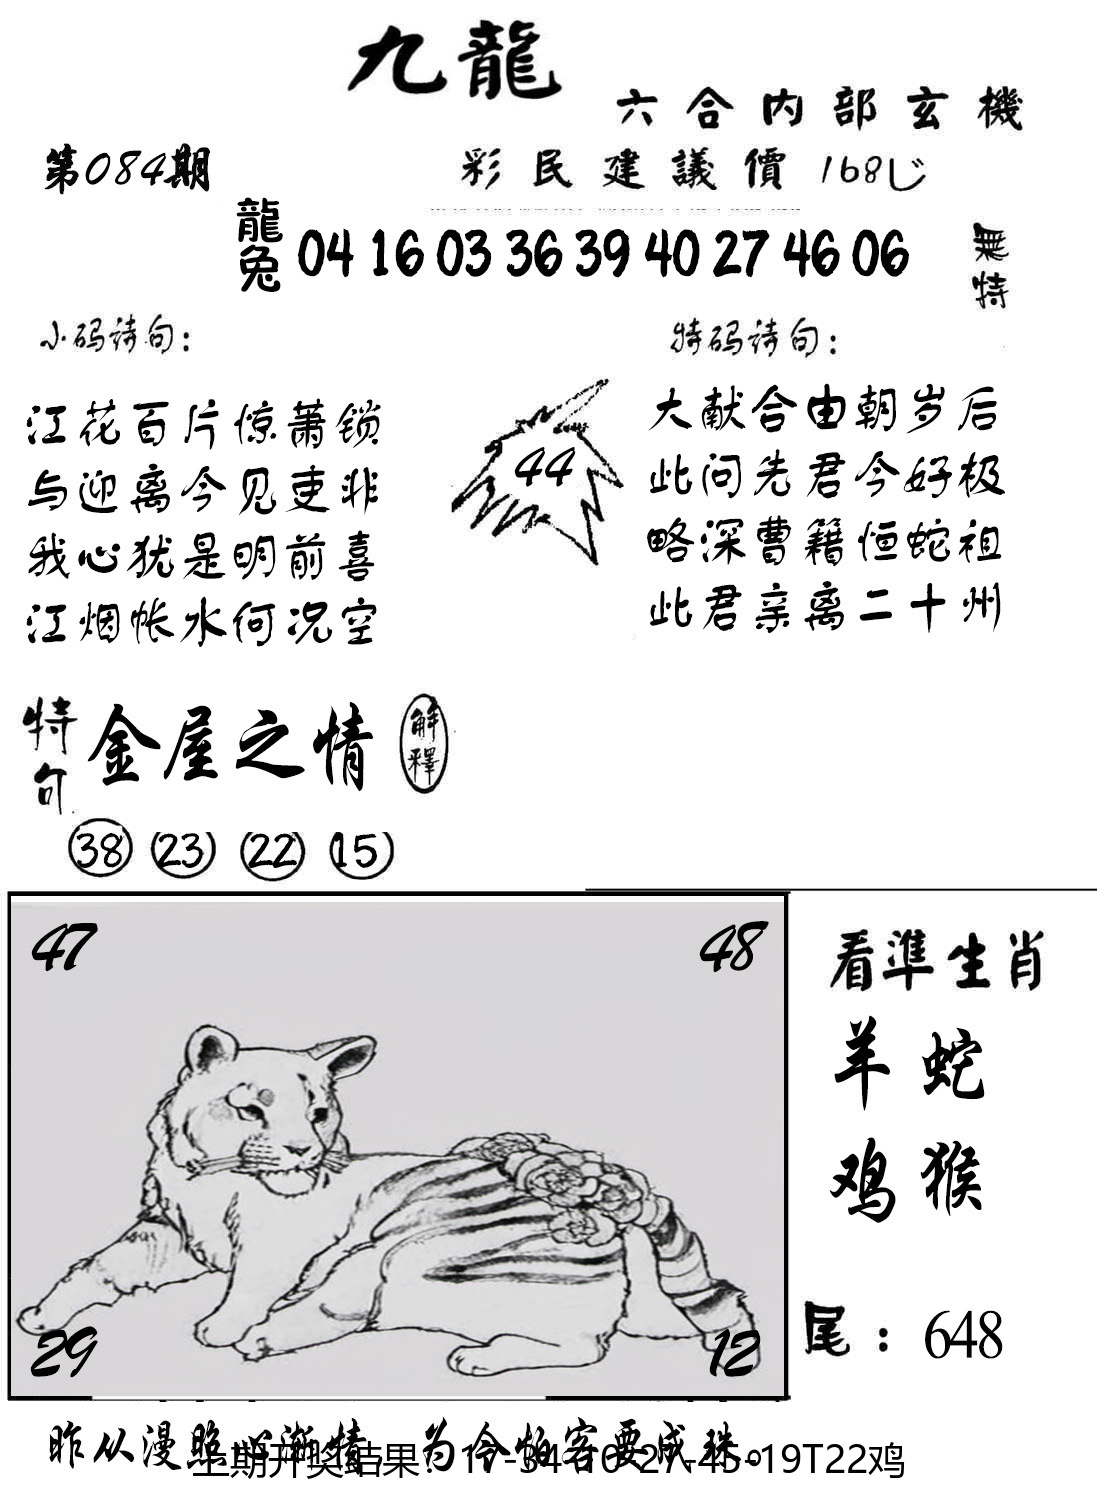 九龍
六合内部玄機
第084期
彩民建議價 168
龍兔 04 16 03 36 39 40 27 46 06 無特
小码诗句：
江花百片惊萧锁
与迎离今见吏非
我心犹是明前喜
江烟帐水何况空
44
特码诗句：
大献合由朝岁后
此问先君今好极
略深曹籍恒蛇祖
此君亲离二十州
特句 金屋之情 解釋
38 23 22 15
47 48
29 12
看準生肖
羊蛇
鸡猴
尾：648
昨从漫照心渐情 为令怕客要成珠。
上期开奖结果：17-34-10-27-45-19T22鸡